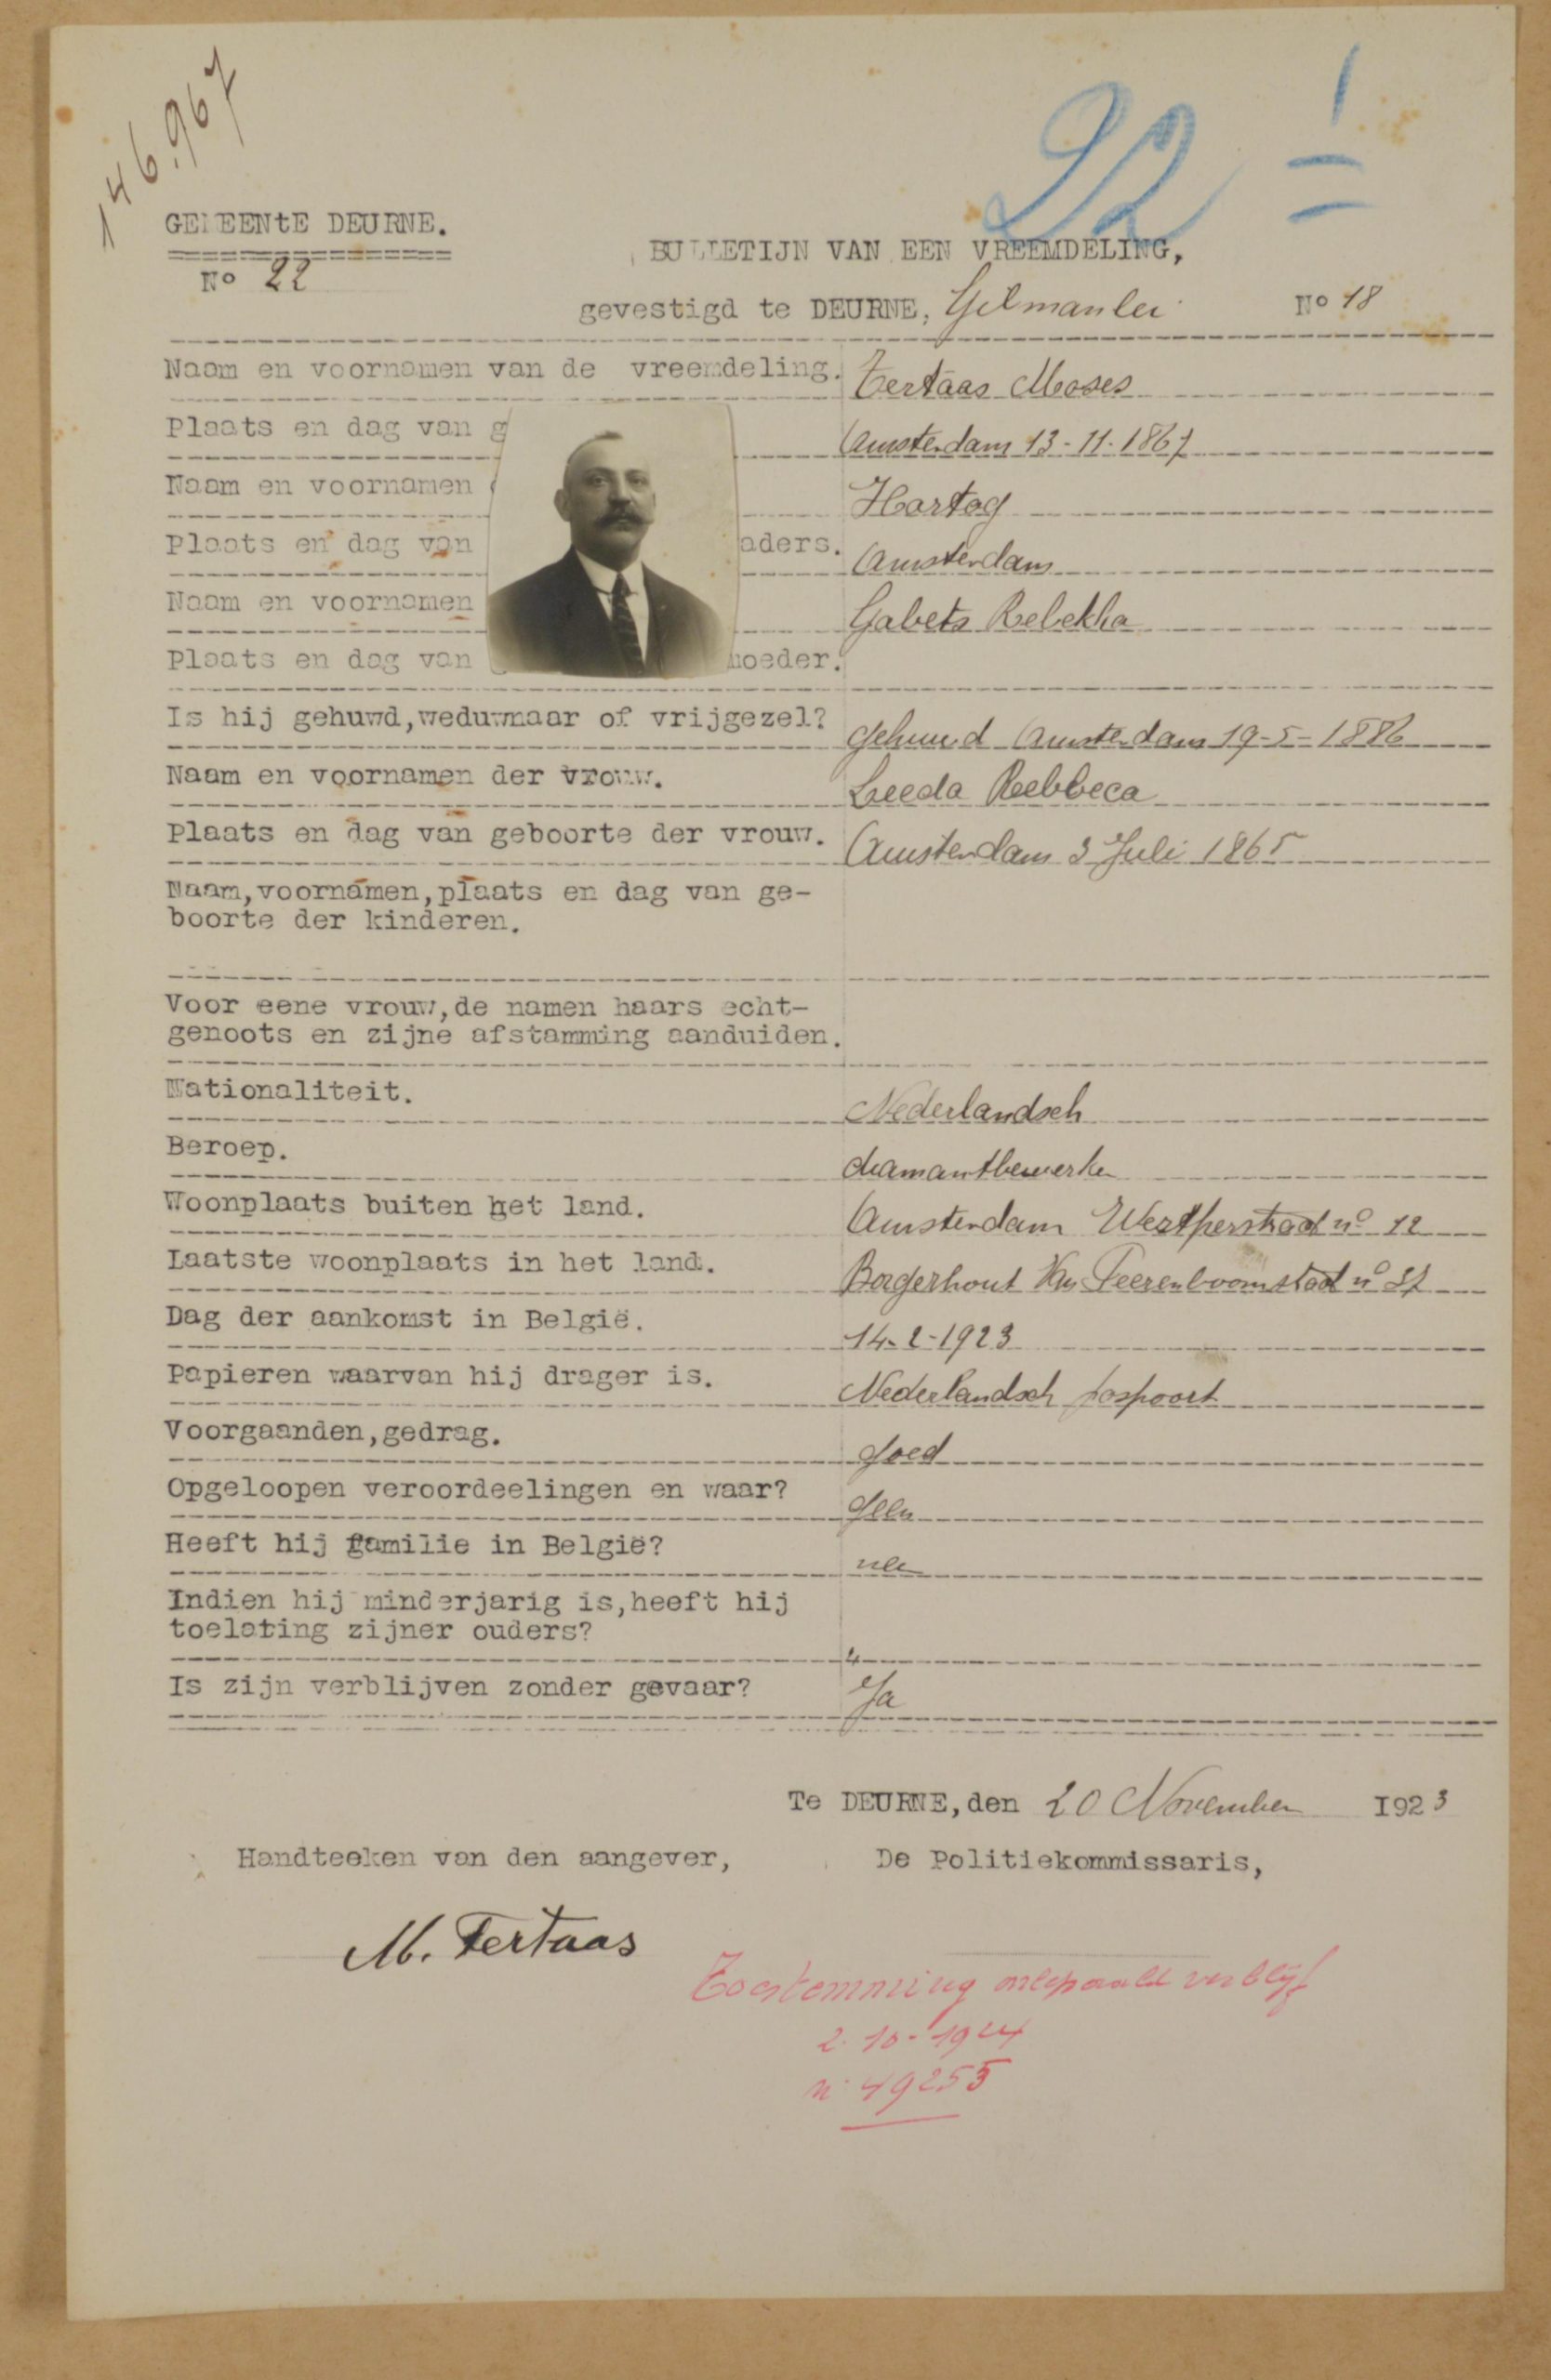 146.967
22 1
=
GEMEENtE DEURNE.
No 22
BULLETIJN VAN EEN VREEMDELING,
gevestigd te DEURNE, Gilmanlei No 18
Naam en voornamen van de vreemdeling. Tertaas Moses
Plaats en dag van g Amsterdam 13-11-1867
Naam en voornamen Hartog
Plaats en dag van aders. Amsterdam
Naam en voornamen Gabets Rebekka
Plaats en dag van moeder.
Is hij gehuwd,weduwnaar of vrijgezel? gehuwd Amsterdam 19-5-1886
Naam en voornamen der vrouw. Leeda Rebbeca
Plaats en dag van geboorte der vrouw. Amsterdam 3 Juli 1865
Naam,voornamen,plaats en dag van ge-
boorte der kinderen.
Voor eene vrouw,de namen haars echt-
genoots en zijne afstamming aanduiden.
Nationaliteit. Nederlandsch
Beroep. diamantbewerker
Woonplaats buiten het land. Amsterdam no 12
Laatste woonplaats in het land. Borgerhout Van Peerenboomstraat no
Dag der aankomst in België. 14-2-1923
Papieren waarvan hij drager is. Nederlandsch paspoort
Voorgaanden,gedrag. goed
Opgeloopen veroordeelingen en waar? geen
Heeft hij familie in België? nee
Indien hij minderjarig is,heeft hij
toelating zijner ouders?
Is zijn verblijven zonder gevaar? Ja
Te DEURNE,den 20 November 1923
Handteeken van den aangever, De Politiekommissaris,
M. Tertaas
Toestemming onbepaald verblijf
2-10-1924
n. 49253